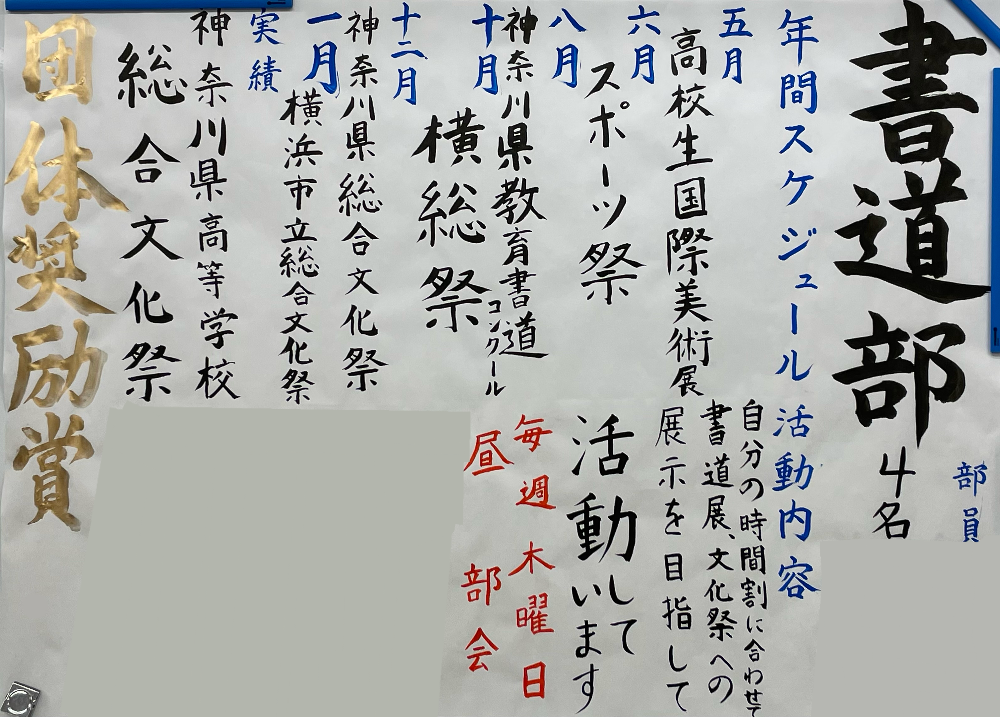 書道部
部員
4名
年間スケジュール
五月
高校生国際美術展
六月
スポーツ祭
八月
神奈川県教育書道コンクール
十月
横総祭
十二月
神奈川県総合文化祭
一月
横浜市立総合文化祭
実績
神奈川県高等学校
総合文化祭
団体奨励賞
活動内容
自分の時間割に合わせて
書道展、文化祭への
展示を目指して
活動して
います
毎週木曜日
昼部会